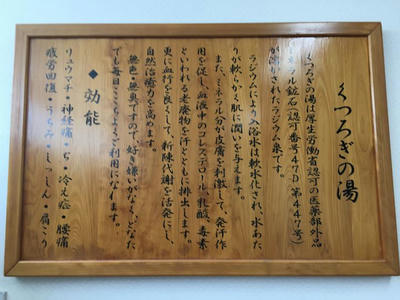 くつろぎの湯
くつろぎの湯は厚生労働省認可の医薬部外品
ミネラル鉱石(認可番号47D第447号)
が溶かされたラジウム泉です。
ラジウムにより入浴水は軟水化され、水あた
りが軟らかく肌に潤いを与えます。
また、ミネラル分が皮膚を刺激して、発汗作
用を促し、血液中のコレステロール、乳酸、毒素
といわれる老廃物を汗とともに排出します。
更に血行を良くして、新陳代謝を活発にし、
自然治癒力を高めます。
無色・無臭ですので、好き嫌いがなく、どなた
でも毎日ここちよくご利用になれます。
◆ 効能
リュウマチ・神経痛・ぢ・冷え症・腰痛
疲労回復・うちみ・しっしん・肩こり